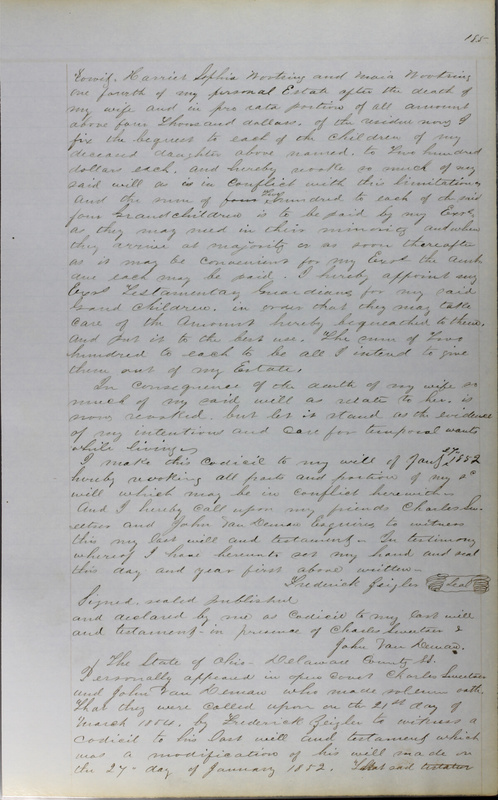 185
Edwid. Harriet Sophia Wootring and Maria Wootring
one fourth of my personal Estate after the death of
my wife and in pro rata portion of all amount
above four Thousand dollars. of the residue now I
fix the bequest to each of the children of my
deceased daughter above named. to Two hundred
dollars each. and hereby revoke so much of my
said will as is in conflict with this limitation
and the sum of four Two hundred to each of the said
four Grandchildren is to be paid by my Exrs
as they may need in their minority and when
they arrive at majority or as soon thereafter
as it may be convenient for my Exrs the amt
due each may be paid. I hereby appoint my
Exrs Testamentary Guardians for my said
Grand children. in order that they may take
care of the amount hereby bequeathed to them.
and put it to the best use. The sum of Two
hundred to each to be all I intend to give
them out of my Estate.
In consequence of the death of my wife so
much of my said will as relate to her. is
now revoked. but let it stand as the evidence
of my intentions and care for temporal wants
while living
I make this codicil to my will of Jany 27 1882
hereby revoking all parts and portion of my sd
will which may be in conflict herewith
And I hereby call upon my friends Charles Sw-
eetser and John Van Deman Esquires to witness
this my last will and testament. In testimony
whereof I have hereunto set my hand and seal
this day and year first above written
Frederick Zeigler seal
Signed. sealed published
and declared by me as codicil to my last will
and testament in presence of Charles Sweetser &
John Van Deman.
The State of Ohio. Delaware County SS.
Personally appeared in open court Charles Sweetser
and John Van Deman who made solemn oath.
That they were called upon on the 21st day of
March 1884. by Frederick Zeigler to witness a
codicil to his last will and testament which
was a modification of his will made on
the 27 day of January 1882. That said testator